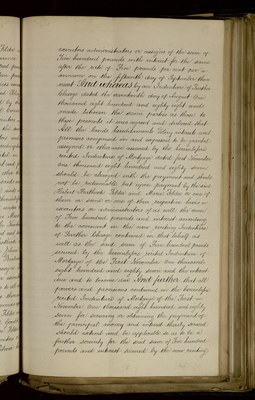 executors administrators or assigns of the sum of
Five hundred pounds with interest for the same
after the rate of Five pounds per cent per
annum on the fifteenth day of September then
next And whereas by an Indenture of Further
Charge dated the day of August One
thousand eight hundred and eighty eight and
made between the same parties as those to
these presents it was agreed and declared that
All the lands hereditaments tithes rents and
premises comprised in and expressed to be granted
assigned or otherwise assured by the hereinbefore
recited Indenture of Mortgage dated first November
One thousand eight hundred and eighty seven
should be charged with the payment and should
not be redeemable but upon payment by the said
Robert and Maria or one of
them or some or one of their respective heirs
executors or administrators of as well the sum
of Five hundred pounds and interest according
to the covenant in the now reciting Indenture
of Further Charge contained in that behalf as
well as the said sum of Five hundred pounds
secured by the hereinbefore recited Indenture of
Mortgage of the First November One thousand
eight hundred and eighty seven and the interest
due and to become due And further that all
powers and provisions contained in the hereinbefore
recited Indenture of Mortgage of the First
November One thousand eight hundred and eighty
seven for securing or obtaining the payment of
the principal money and interest thereby secured
should extend and be applicable so as to be a
further security for the said sum of Five hundred
pounds and interest secured by the now reciting